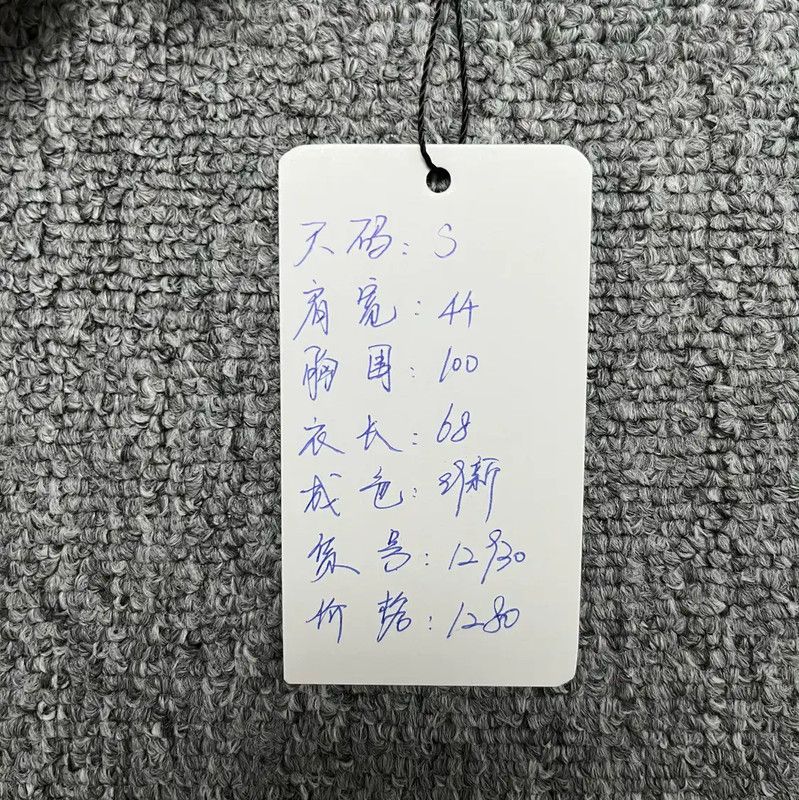 尺码：S
肩宽：44
胸围：100
衣长：68
成色：新
货号：12930
价格：1280